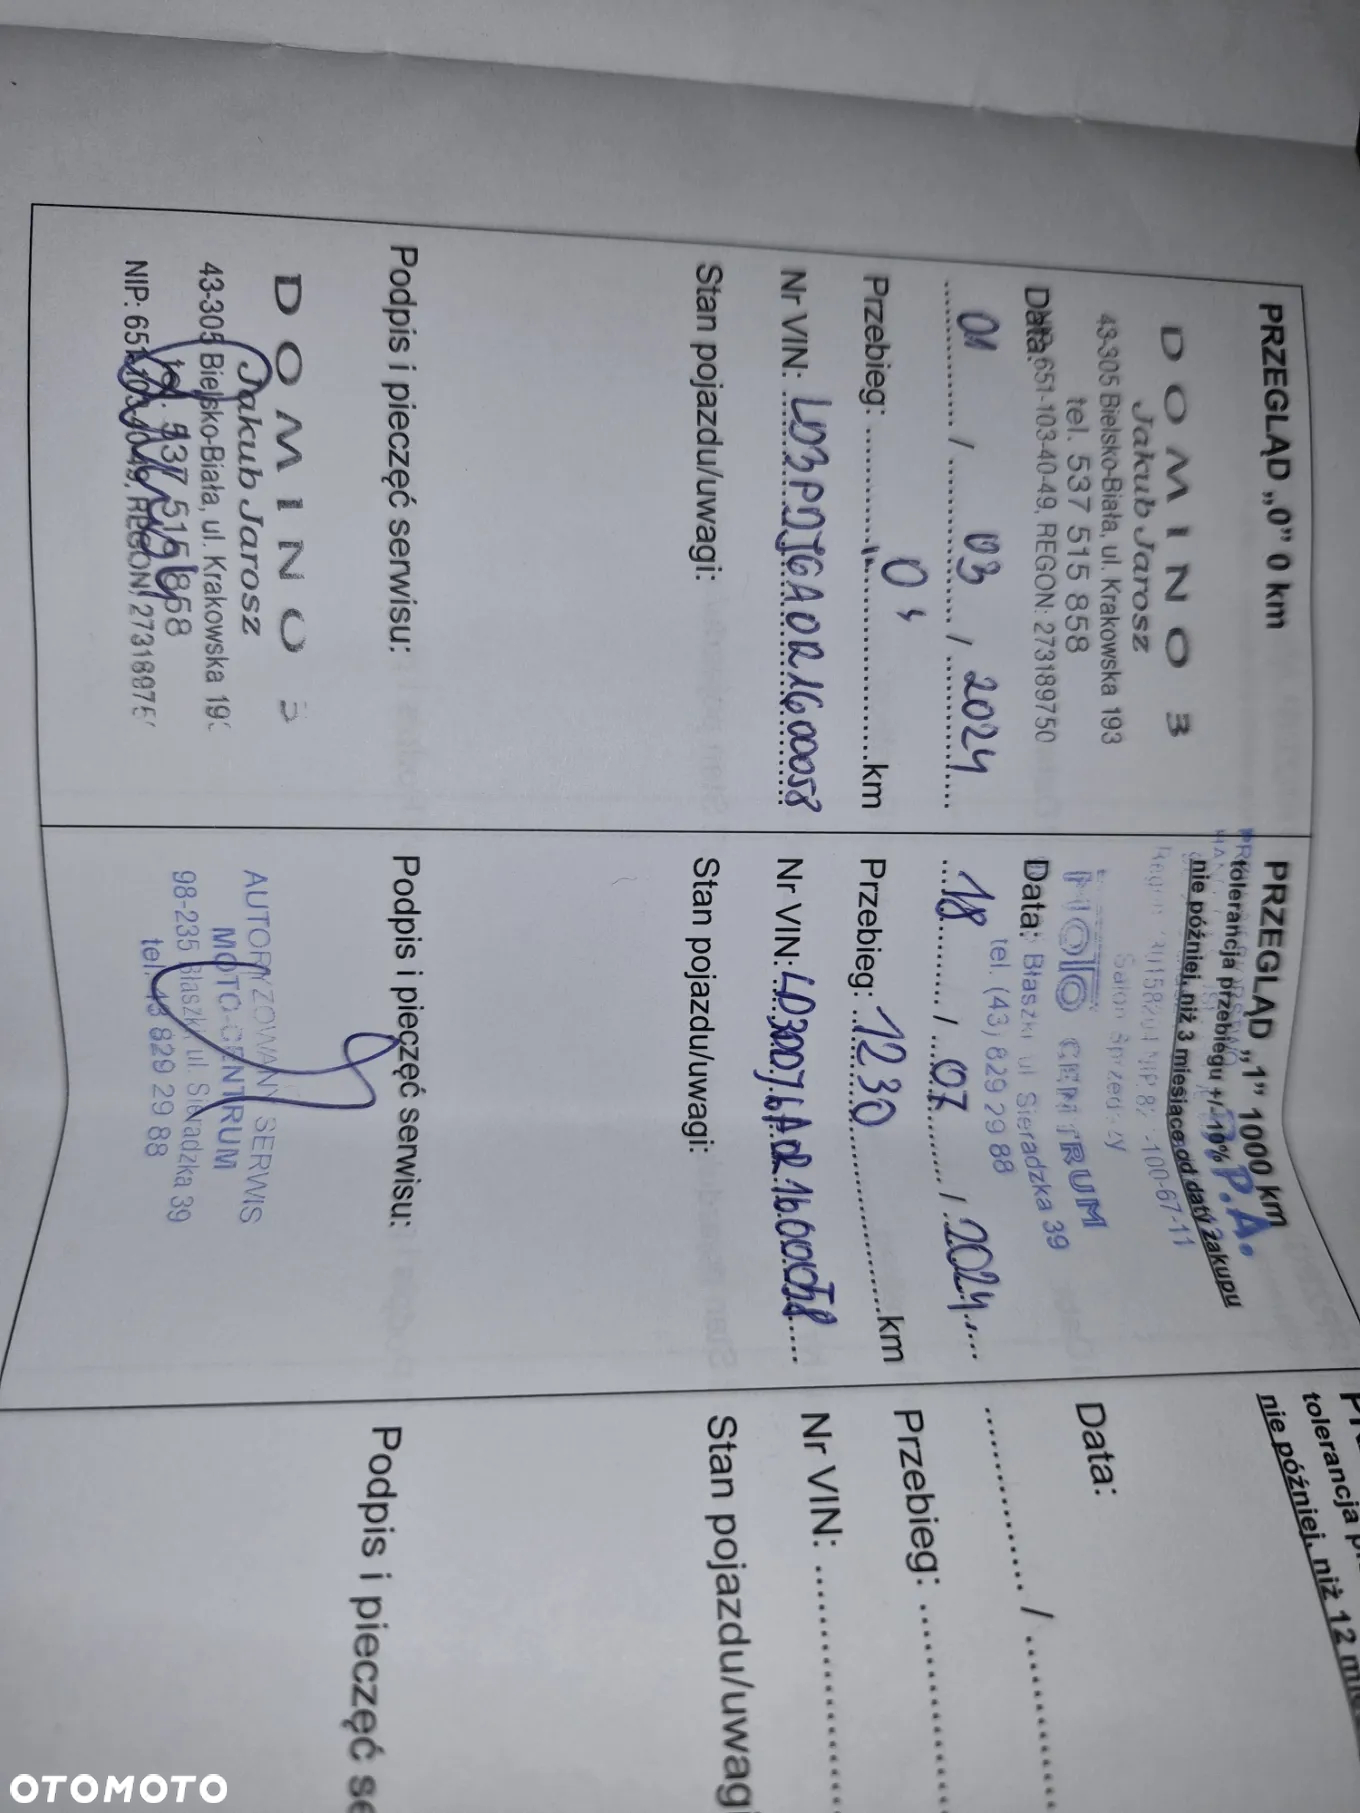 PRZEGLĄD „0” 0 km
DOMINO 3
Jakub Jarosz
43-305 Bielsko-Biała, ul. Krakowska 193
tel. 537 515 858
Data: 651-103-40-49, REGON: 273189750
01 / 03 / 2024
Przebieg: 0 km
Nr VIN:
Stan pojazdu/uwagi:
Podpis i pieczęć serwisu:
DOMINO 3
Jakub Jarosz
43-305 Bielsko-Biała, ul. Krakowska 193
tel. 537 515 858
NIP: 651-103-40-49, REGON: 27318975
PRZEGLĄD „1” 1000 km
tolerancja przebiegu +/-10%
nie później, niż 3 miesiące od daty zakupu
P.A.
-100-67-11
Salon Sprzedaży
MOTO CENTRUM
Data: Błaszki ul Sieradzka 39
tel. (43) 829 29 88
18 / 07 / 2024
Przebieg: 1230 km
Nr VIN:
Stan pojazdu/uwagi:
Podpis i pieczęć serwisu:
AUTORYZOWANY SERWIS
MOTO-CENTRUM
98-235 Błaszki, ul. Sieradzka 39
tel. 43 829 29 88
tolerancja
nie później, niż 12
Data:
/
Przebieg:
Nr VIN:
Stan pojazdu/uwagi
Podpis i pieczęć se
OTOMOTO